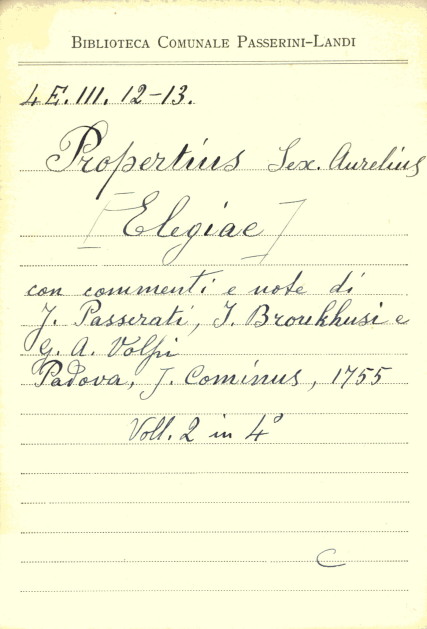 BIBLIOTECA COMUNALE PASSERINI-LANDI
4 E. III. 12-13.
Propertius Sex. Aurelius
[Elegiae]
con commenti e note di
J. Passerati, J. Broukhusi e
G. A. Volpi
Padova, J. Cominus, 1755
Voll. 2 in 4°
C